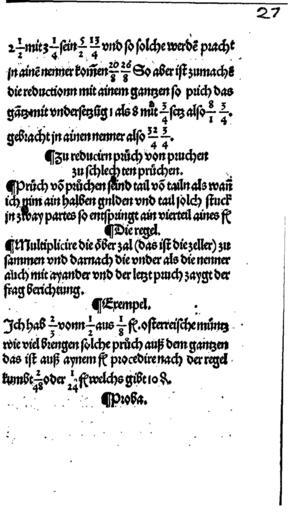 27
2 1/2 mit 3 1/4 sein 5/2 13/4 und so solche werdē pracht
in ainē nenner kom̄en 20/8 26/8 So aber ist zumachē
die reductionn mit ainem gantzen so prich das
gātz mit undersetzūg 1 als 8 mit 3/4 setz also 8/1 3/4.
gebracht in ainen nenner also 32/4 3/4.
¶Zu reducirn prüch von pruchen
zu schlechten prüchen.
¶Prüch vō prüchen sind tail vō tailn als wan̄
ich nim ain halben gulden und tail solch stuck
in zway partes so entspringt ain vierteil aines fl
¶Die regel.
¶Multiplicire die öber zal (das ist die zeller) zu
sammen und darnach die under als die nenner
auch mit ayander und der letzt pruch zaygt der
frag berichtung.
¶Exempel.
Ich hab 2/3 vonn 1/2 aus 1/8 fl. osterreische müntz
wie viel brengen solche prüch auß dem gantzen
das ist auß aynem fl procedire nach der regel
kumbt 2/48 oder 1/24 fl welchs gibt 10 ₰.
¶Proba.